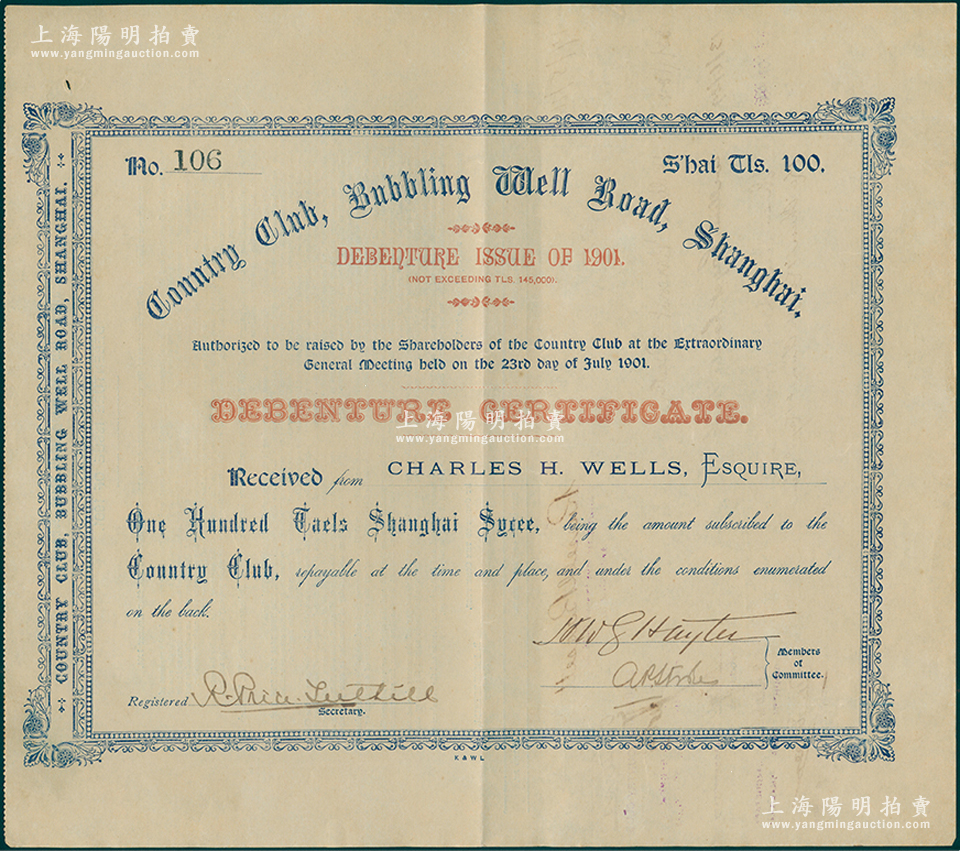 上海陽明拍賣
www.yangmingauction.com
No. 106
S'hai Tls. 100.
Country Club, Bubbling Well Road, Shanghai.
DEBENTURE ISSUE OF 1901.
(NOT EXCEEDING TLS. 145,000).
Authorized to be raised by the Shareholders of the Country Club at the Extraordinary
General Meeting held on the 23rd day of July 1901.
DEBENTURE CERTIFICATE.
上海陽明拍賣
www.yangmingauction.com
Received from CHARLES H. WELLS, ESQUIRE,
One Hundred Taels Shanghai Sycee, being the amount subscribed to the
Country Club, repayable at the time and place, and under the conditions enumerated
on the back.
Hayter
Members
of
Committee.
Registered
Secretary.
K & W L
COUNTRY CLUB, BUBBLING WELL ROAD, SHANGHAI.
上海陽明拍賣
www.yangmingauction.com